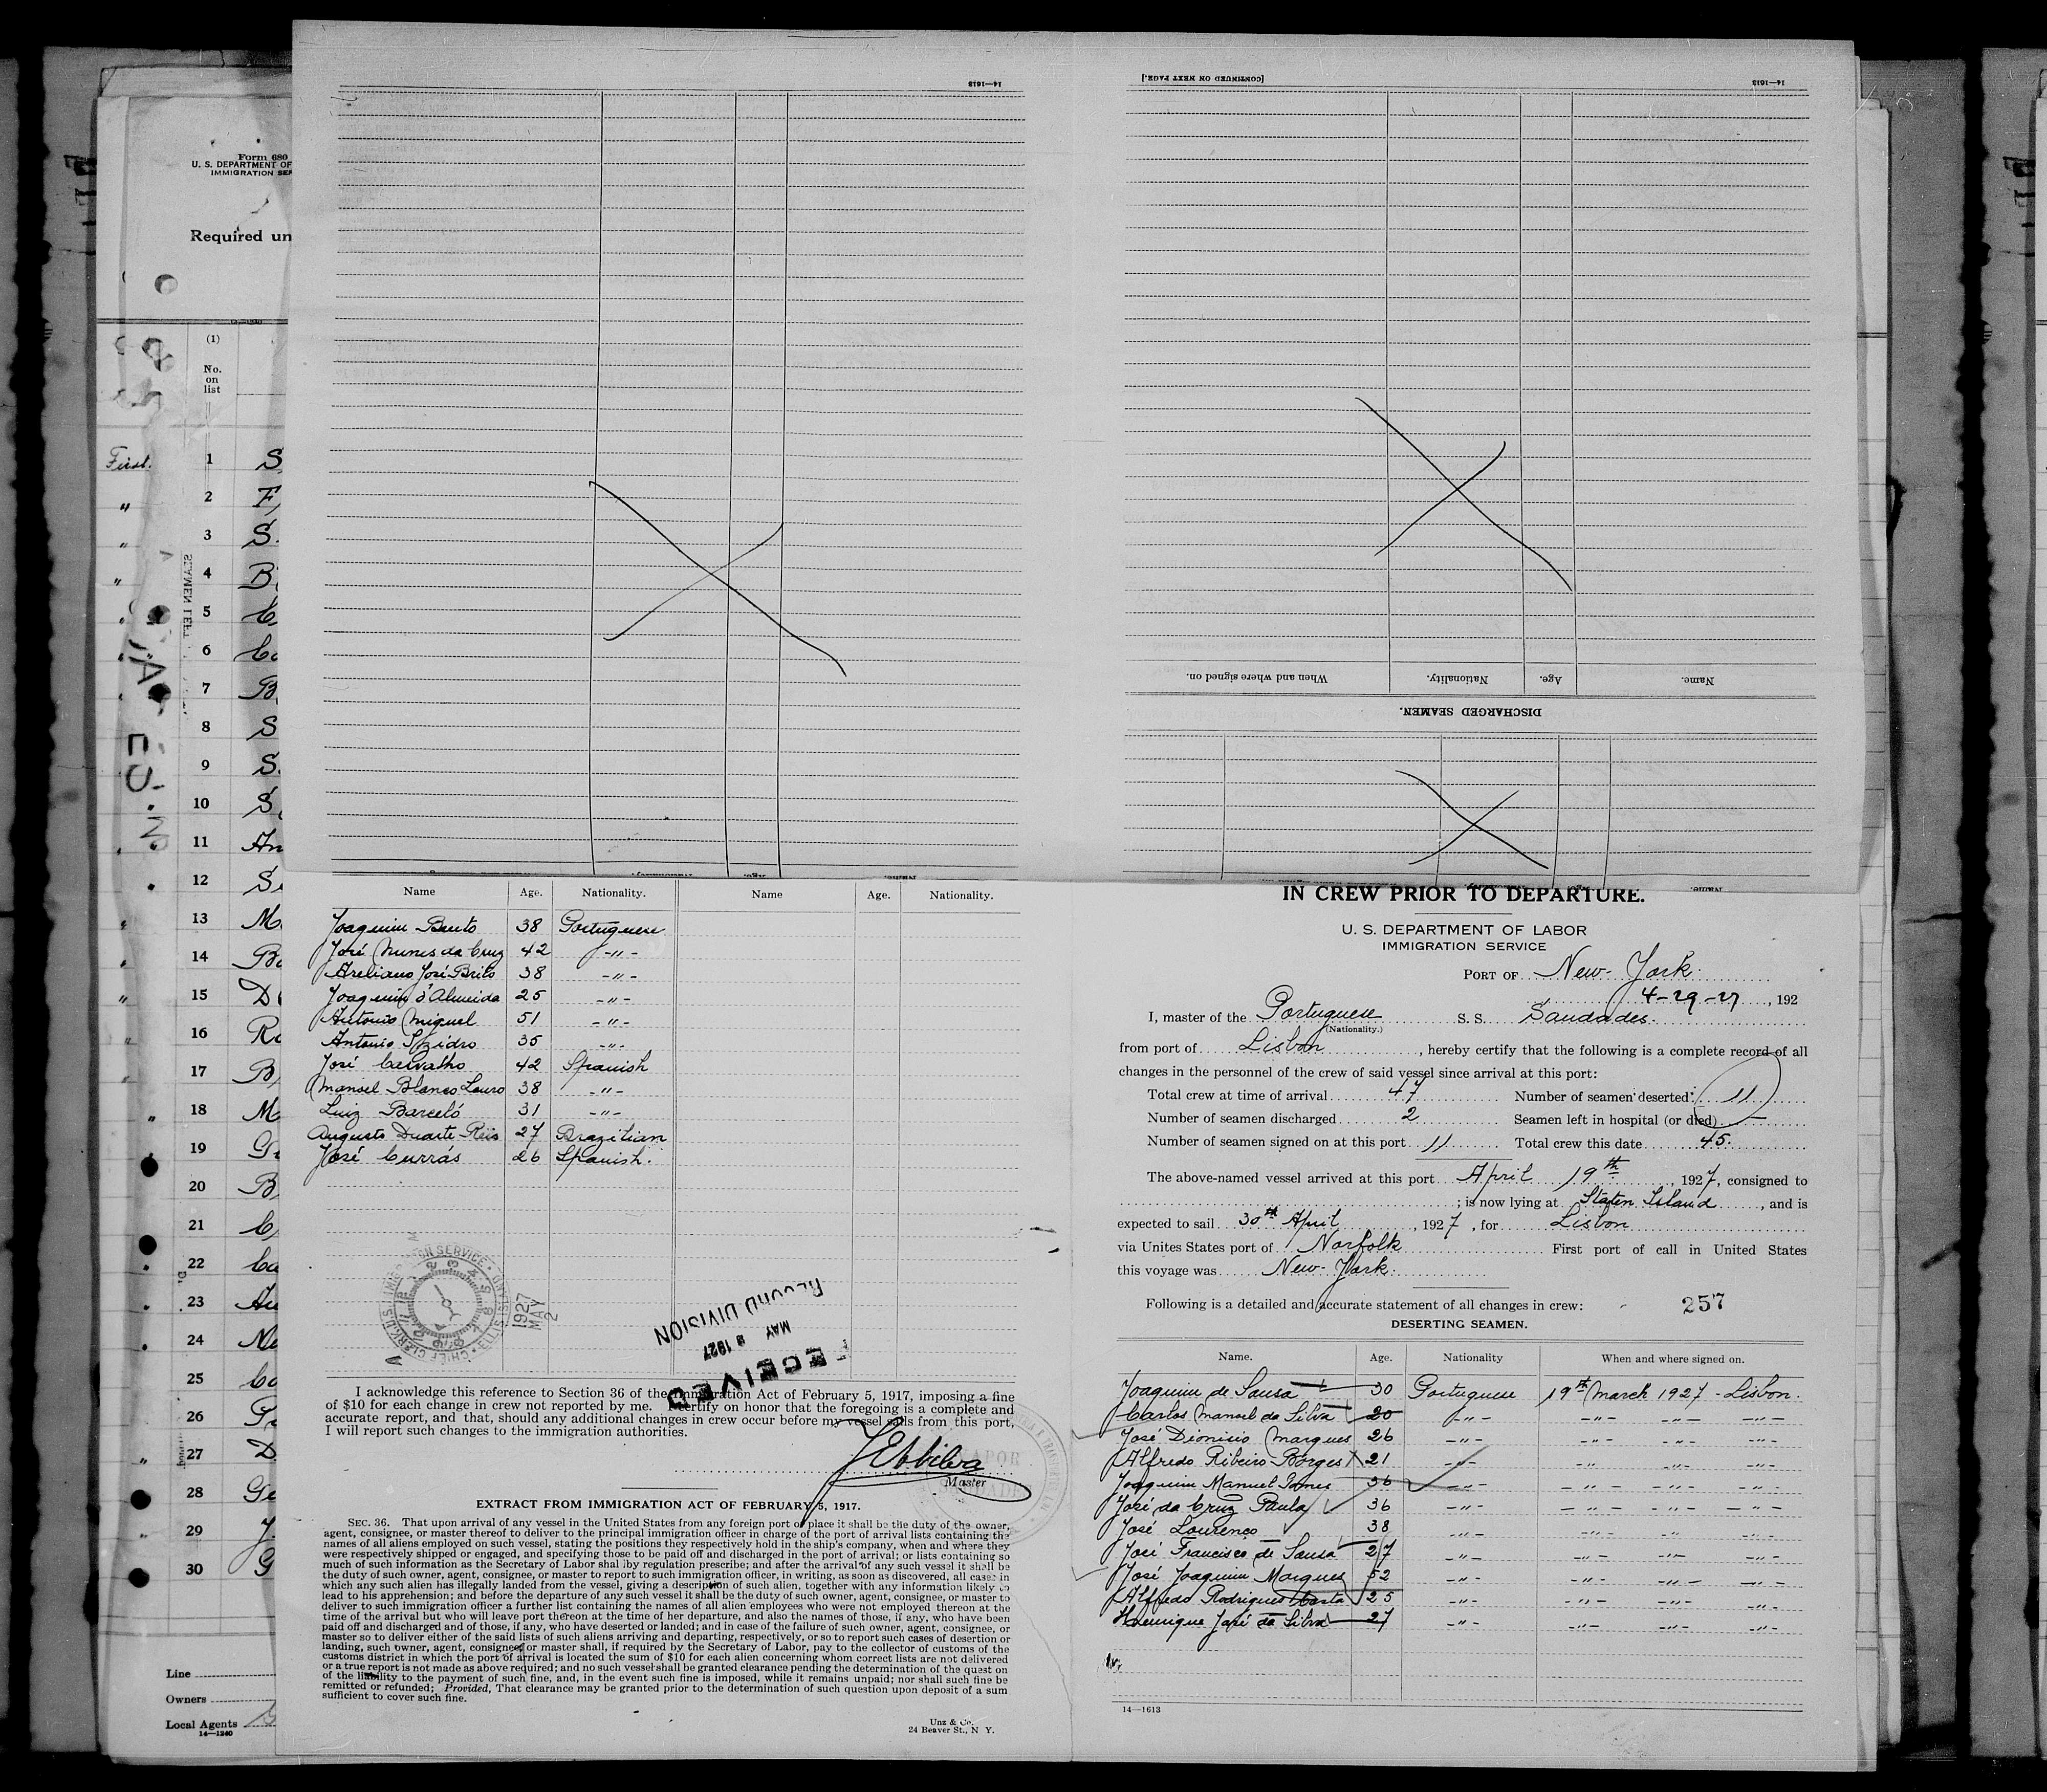 14—1613
[CONTINUED ON NEXT PAGE.]
14—1613
Form 680
U. S. DEPARTMENT OF
IMMIGRATION SER
Required un
(1)
No.
on
list
First.
1 S
2 F
3 S.
4 B
5
6 Co
7 B
8 S
9 S.
10 S
11 An
12 S
13 M
14 Bo
15 D
16 Ro
17 B
18 M
19 G
20 B
21
22 Ca
23 Au
24
25 Co
26
27 D
28 Ge
29 J
30 G
Line
Owners
Local Agents
14—1240
When and where signed on.
Nationality.
Age.
Name.
DISCHARGED SEAMEN.
Name Age. Nationality. Name Age. Nationality.
Joaquim Bento 38 Portuguese
José Nunes da Cruz 42 -"-
Areliano José Brito 38 -"-
Joaquim d'Almeida 25 -"-
Antonio Miguel 51 -"-
Antonio Izidro 35 -"-
José Carvalho 42 Spanish
Manoel Blanco Louro 38 -"-
Luiz Barceló 31 -"-
Augusto Duarte Reis 27 Brazilian
José Currás 26 Spanish.
1927
MAY
2
RECORD DIVISION
MAY 1927
RECEIVED
I acknowledge this reference to Section 36 of the Immigration Act of February 5, 1917, imposing a fine
of $10 for each change in crew not reported by me. I certify on honor that the foregoing is a complete and
accurate report, and that, should any additional changes in crew occur before my vessel sails from this port,
I will report such changes to the immigration authorities.
Master
EXTRACT FROM IMMIGRATION ACT OF FEBRUARY 5, 1917.
SEC. 36. That upon arrival of any vessel in the United States from any foreign port or place it shall be the duty of the owner,
agent, consignee, or master thereof to deliver to the principal immigration officer in charge of the port of arrival lists containing the
names of all aliens employed on such vessel, stating the positions they respectively hold in the ship's company, when and where they
were respectively shipped or engaged, and specifying those to be paid off and discharged in the port of arrival; or lists containing so
much of such information as the Secretary of Labor shall by regulation prescribe; and after the arrival of any such vessel it shall be
the duty of such owner, agent, consignee, or master to report to such immigration officer, in writing, as soon as discovered, all cases in
which any such alien has illegally landed from the vessel, giving a description of such alien, together with any information likely to
lead to his apprehension; and before the departure of any such vessel it shall be the duty of such owner, agent, consignee, or master to
deliver to such immigration officer a further list containing the names of all alien employees who were not employed thereon at the
time of the arrival but who will leave port thereon at the time of her departure, and also the names of those, if any, who have been
paid off and discharged and of those, if any, who have deserted or landed; and in case of the failure of such owner, agent, consignee, or
master so to deliver either of the said lists of such aliens arriving and departing, respectively, or so to report such cases of desertion or
landing, such owner, agent, consignee, or master shall, if required by the Secretary of Labor, pay to the collector of customs of the
customs district in which the port of arrival is located the sum of $10 for each alien concerning whom correct lists are not delivered
or a true report is not made as above required; and no such vessel shall be granted clearance pending the determination of the question
of the liability to the payment of such fine, and, in the event such fine is imposed, while it remains unpaid; nor shall such fine be
remitted or refunded; Provided, That clearance may be granted prior to the determination of such question upon deposit of a sum
sufficient to cover such fine.
Unz & Co.
24 Beaver St., N. Y.
IN CREW PRIOR TO DEPARTURE.
U. S. DEPARTMENT OF LABOR
IMMIGRATION SERVICE
PORT OF New-York.
4-29-27, 192
I, master of the Portuguese S. S. Saudades.
(Nationality.)
from port of Lisbon, hereby certify that the following is a complete record of all
changes in the personnel of the crew of said vessel since arrival at this port:
Total crew at time of arrival 47 Number of seamen deserted 11
Number of seamen discharged 2 Seamen left in hospital (or died) —
Number of seamen signed on at this port 11 Total crew this date 45.
The above-named vessel arrived at this port April 19th, 1927, consigned to
; is now lying at Staten Island, and is
expected to sail 30th April, 1927, for Lisbon
via Unites States port of Norfolk First port of call in United States
this voyage was New-York.
Following is a detailed and accurate statement of all changes in crew: 257
DESERTING SEAMEN.
Name. Age. Nationality When and where signed on.
Joaquim de Sousa 30 Portuguese 19th March 1927 - Lisbon.
Carlos Manoel da Silva 20 -"- -"- -"- -"-
José Dionisio Marques 26 -"- -"- -"- -"-
Alfredo Ribeiro Borges 21 -"- -"- -"- -"-
Joaquim Manuel 36 -"- -"- -"- -"-
José da Cruz Paula 36 -"- -"- -"- -"-
José Lourenço 38 -"- -"- -"- -"-
José Francisco de Sousa 27 -"- -"- -"- -"-
José Joaquim Marques 52 -"- -"- -"- -"-
Alfredo Rodrigues Costa 25 -"- -"- -"- -"-
Henrique José da Silva 27 -"- -"- -"- -"-
14—1613